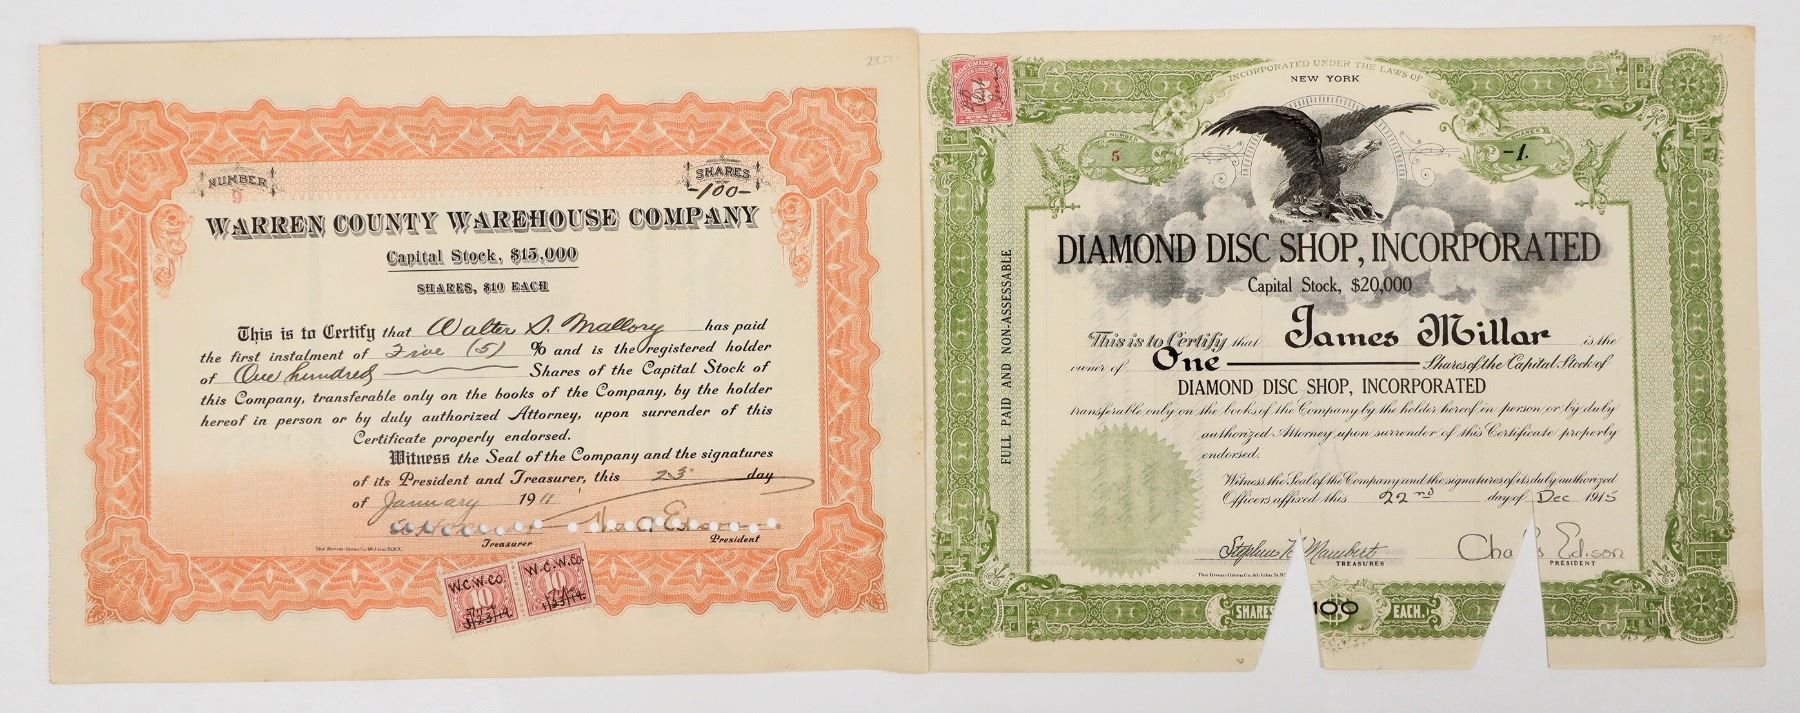 2850-
NUMBER
9
SHARES
-100-
WARREN COUNTY WAREHOUSE COMPANY
Capital Stock, $15,000
SHARES, $10 EACH
This is to Certify that Walter S. Mallory has paid
the first instalment of Five (5) % and is the registered holder
of One hundred Shares of the Capital Stock of
this Company, transferable only on the books of the Company, by the holder
hereof in person or by duly authorized Attorney, upon surrender of this
Certificate properly endorsed.
Witness the Seal of the Company and the signatures
of its President and Treasurer, this 23" day
of January 1911
Treasurer
President
The Broun-Green Co. 48 John St. N.Y.
W.C.W.Co.
W.C.W.Co.
10
10
795
INCORPORATED UNDER THE LAWS OF
NEW YORK
DOCUMENTARY
NUMBER
5
SHARES
-1.
DIAMOND DISC SHOP, INCORPORATED
Capital Stock, $20,000
FULL PAID AND NON-ASSESSABLE
This is to Certify that James Millar is the
owner of One Shares of the Capital Stock of
DIAMOND DISC SHOP, INCORPORATED
transferable only on the books of the Company by the holder hereof in person or by duly
authorized Attorney upon surrender of this Certificate properly
endorsed.
Witness the Seal of the Company and the signatures of its duly authorized
Officers affixed this 22nd day of Dec 1915
Edison
TREASURER
PRESIDENT
The Broun-Green Co. 48 John St. N.Y.
SHARES $100 EACH.